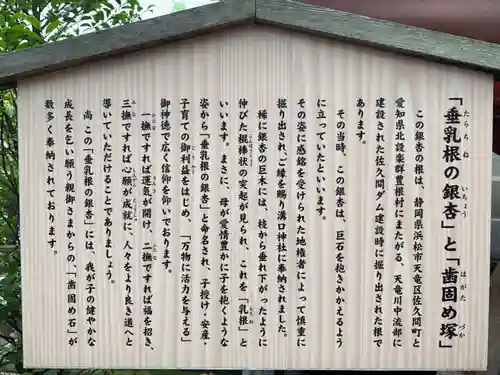 「垂乳根の銀杏」と「歯固め塚」
たらちね
いちょう
はがた
づか
この銀杏の根は、静岡県浜松市天竜区佐久間町と
愛知県北設楽郡豊根村にまたがる、天竜川中流部に
建設された佐久間ダム建設時に掘り出された根で
あります。
その当時、この銀杏は、巨石を抱きかかえるよう
に立っていたといいます。
その姿に感銘を受けられた地権者によって慎重に
掘り出され、ご縁を賜り溝口神社に奉納されました。
稀に銀杏の巨木には、枝から垂れ下がったように
伸びた棍棒状の突起が見られ、これを「乳根」と
いいます。まさに、母が愛情豊かに子を抱くような
姿から「垂乳根の銀杏」と命名され、子授け・安産・
子育ての御利益をはじめ、「万物に活力を与える」
御神徳で広く信仰を仰いでおります。
一撫ですれば運気が開け、二撫ですれば福を招き、
三撫ですれば心願が成就に、人々をより良き道へと
導いていただけることでありましょう。
尚、この「垂乳根の銀杏」には、我が子の健やかな
成長を乞い願う親御さまからの、「歯固め石」が
数多く奉納されております。